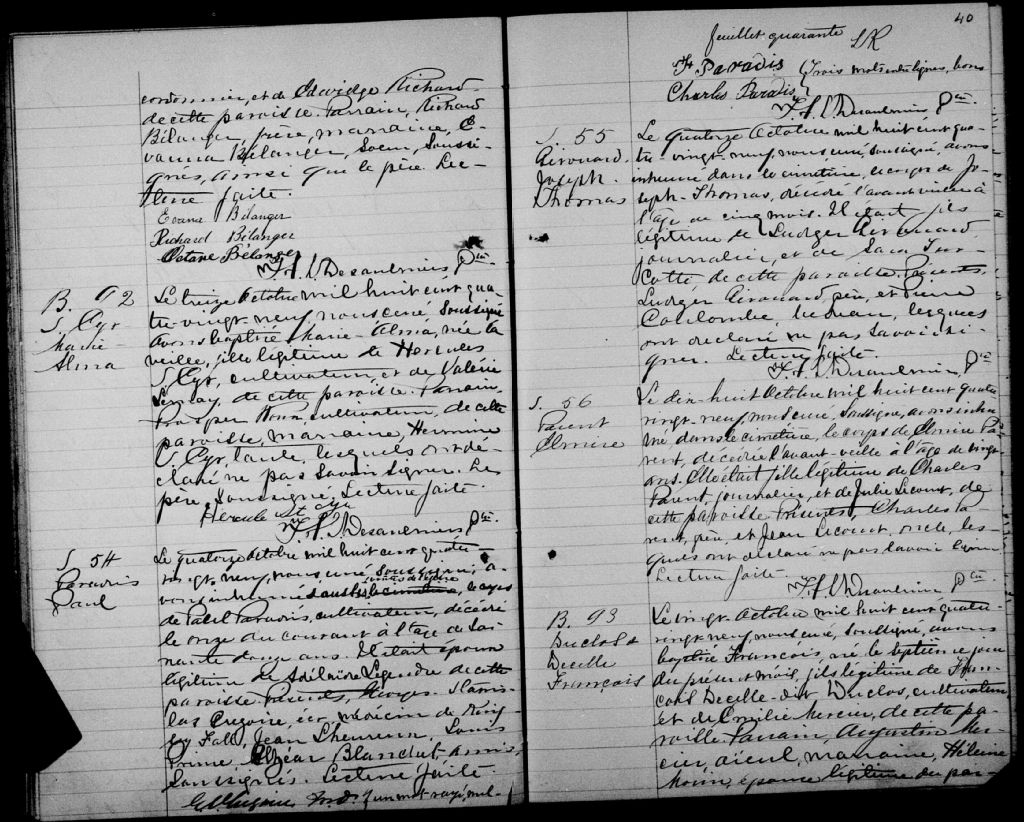 cordonnier, et de Edwidge Richard
de cette paroisse. Parrain, Richard
Bélanger, frère, marraine, E-
vanna Bélanger, Soeur, Soussi-
gnés, ainsi que le père. Lec-
ture faite.
Evana Bélanger
Richard Bélanger
Octave Bélanger
Desaulniers Ptre
B. 92
St Cyr
Marie
Alma
Le treize Octobre mil huit cent qua-
tre-vingt-neuf, nous curé, Soussigné
avons baptisé Marie-Alma, née la
veille, fille légitime de Hercules
St Cyr, cultivateur et de Valérie
Lemay, de cette paroisse. Parrain,
Prosper cultivateur, de cette
paroisse, marraine, Hermine
St Cyr, tante, lesquels ont dé-
claré ne pas Savoir Signer. Le
père, Soussigné. Lecture faite.
Hercule St Cyr
Desaulniers Ptre
S. 54
Paradis
Paul
Le quatorze Octobre mil huit cent quatre
vingt-neuf, nous curé, soussigné, a-
vons inhumé sous l'église, le corps
de Paul Paradis, cultivateur, décédé
le onze du courant à l'âge de Soi-
xante douze ans. Il était époux
légitime de Adélaïde Legendre de cette
paroisse. Présents, Georges Stanis-
las Grégoire, écr, médecin de
Fall, Jean L'heureux, Louis
Prime, Elzéar Blanchet amis,
Soussignés. Lecture faite.
un mot rayé, nul
40
feuillet quarante LR
Paradis (Trois mots interlignes, bons
Charles Paradis
Desaulniers Ptre
S. 55
Girouard
Joseph
Thomas
Le quatorze Octobre mil huit cent qua-
tre-vingt-neuf, nous curé, soussigné, avons
inhumé dans le cimetière, le corps de Jo-
seph-Thomas, décédé l'avant veille à
l'âge de cinq mois. Il était fils
légitime de Ludger Girouard
journalier, et de
de cette paroisse. Présents,
Ludger Girouard, père, et Pierre
Coulombe bedeau, lesquels
ont déclaré ne pas Savoir Si-
gner. Lecture faite.
Desaulniers Ptre
S. 56
Parent
Elmire
Le dix-huit Octobre mil huit cent quatre
vingt-neuf, nous curé, soussigné, avons inhu-
mé dans le cimetière, le corps de Elmire Pa-
rent, décédée l'avant-veille à l'âge de vingt
ans. Elle était fille légitime de Charles
Parent, journalier, et de Julie Lecourt, de
cette paroisse. Présents Charles Pa-
rent, père et Jean Lecourt, oncle, les-
quels ont déclaré ne pas savoir signer
Lecture faite.
Desaulniers Ptre
B. 93
Duclos &
Decelle
François
Le vingt Octobre mil huit cent quatre
vingt-neuf, nous curé, Soussigné, avons
baptisé François, né le septième jour
du présent mois, fils légitime de Fran-
çois Decelle dit Duclos, cultivateur
et de Emilie Mercier, de cette pa-
roisse. Parrain, Augustin Mer-
cier, aïeul, marraine, Hélène
Morin, épouse légitime du par-